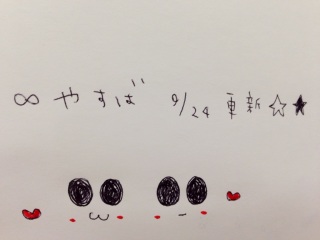 ∞ やすば" 9/24 更新☆★